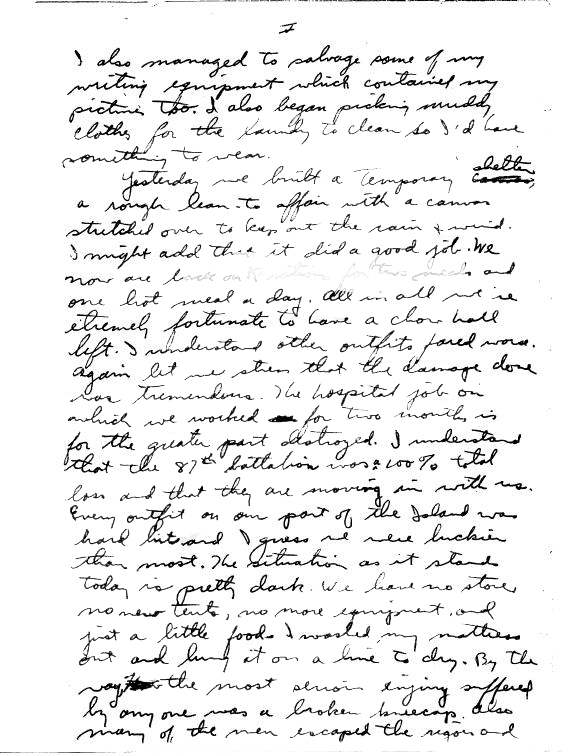 I
I also managed to salvage some of my
writing equipment which contained my
picture too. I also began picking muddy
clothes for the laundry to clean so I'd have
something to wear.
Yesterday we built a temporary shelter,
a rough lean-to affair with a canvas
stretched over to keep out the rain & wind.
I might add that it did a good job. We
now are back on K rations for two meals and
one hot meal a day. All in all we're
etremely fortunate to have a chow hall
left. I understand other outfits fared worse.
Again let me stress that the damage done
was tremendous. The hospital job on
which we worked for two months is
for the greater part destroyed. I understand
that the 87th battalion was a 100% total
loss and that they are moving in with us.
Every outfit on our part of the Island was
hard hit and I guess we were luckier
than most. The situation as it stands
today is pretty dark. We have no stores,
no new tents, no more equipment, and
just a little food. I washed my mattress
out and hung it on a line to dry. By the
way, the most serious injury suffered
by anyone was a broken kneecap. Also
many of the men escaped the rigors and